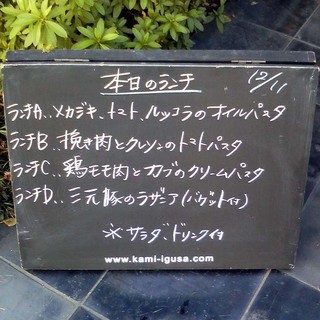 本日のランチ 12/11
ランチA‥メカジキ、トマト、ルッコラのオイルパスタ
ランチB‥挽き肉とクレソンのトマトパスタ
ランチC‥鶏モモ肉とカブのクリームパスタ
ランチD‥三元豚のラザニア(バゲット付)
※サラダ、ドリンク付
www.kami-igusa.com